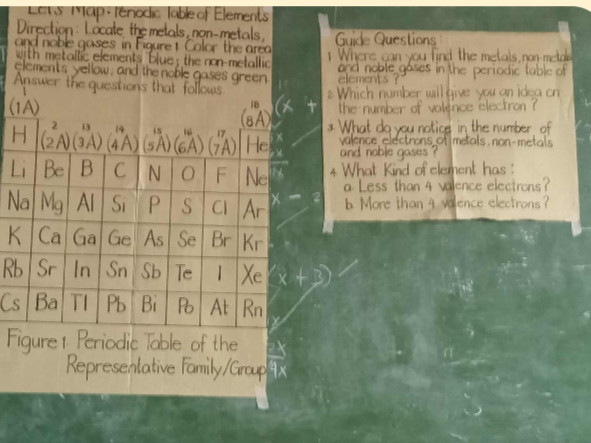 Let's Map - Periodic Table of Elements
Direction: Locate the metals, non-metals,
and noble gases in Figure 1. Color the area
with metallic elements blue; the non-metallic
elements yellow; and the noble gases green.
Answer the questions that follows.
1 18
(1A) (8A)
2 13 14 15 16 17
H (2A) (3A) (4A) (5A) (6A) (7A) He
Li Be B C N O F Ne
Na Mg Al Si P S Cl Ar
K Ca Ga Ge As Se Br Kr
Rb Sr In Sn Sb Te I Xe
Cs Ba Tl Pb Bi Po At Rn
Figure 1. Periodic Table of the
Representative Family/Group
Guide Questions:
1. Where can you find the metals, non-metals
and noble gases in the periodic table of
elements?
2. Which number will give you an idea on
the number of valence electron?
3. What do you notice in the number of
valence electrons of metals, non-metals
and noble gases?
4. What Kind of element has:
a. Less than 4 valence electrons?
b. More than 4 valence electrons?
(x +
x + 3)
4x